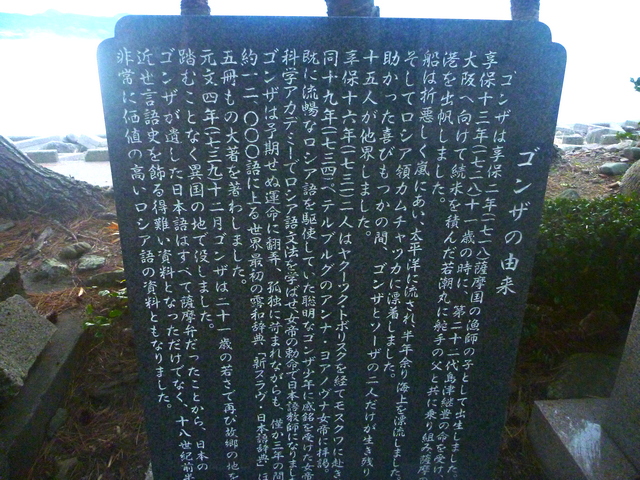 ゴンザの由来
ゴンザは享保二年(一七一八薩摩国の漁師の子として出生しました。
享保十三年(一七二八)十一歳の時に、第二十二代島津継豊の命を受け、
大阪へ向けて続米を積んだ若潮丸に舵手の父と共に乗り組み薩摩の
港を出帆しました。
船は折悪しく嵐にあい、太平洋に流され、半年余り海上を漂流しました
そしてロシア領カムチャツカに漂着しました。
助かった喜びもつかの間、ゴンザとソーザの二人だけが生き残り
十五人が他界しました。
享保十六年(一七三一)二人はヤクーツク、トボリスクを経てモスクワに赴き
同十九年(一七三四)ペテルブルグのアンナ・ヨアノヴナ女帝に拝謁。
既に流暢なロシア語を駆使していた聡明なゴンザ少年に感銘を受けた女帝
科学アカデミーでロシア語文法を学ばせ、女帝の勅命で日本語教師になりまし
ゴンザは予期せぬ運命に翻弄、孤独に苛まれながらも、僅か三年の間
約一二、〇〇〇語に上る世界最初の露和辞典「新スラヴ・日本語辞典」ほ
五冊もの大著を著わしました。
元文四年(一七三九)十二月ゴンザは二十一歳の若さで再び故郷の地を
踏むことなく異国の地で没しました。
ゴンザが遺した日本語はすべて薩摩弁だったことから、日本の
近世言語史を飾る得難い資料となっただけでなく、十八世紀前半
非常に価値の高いロシア語の資料ともなりました。